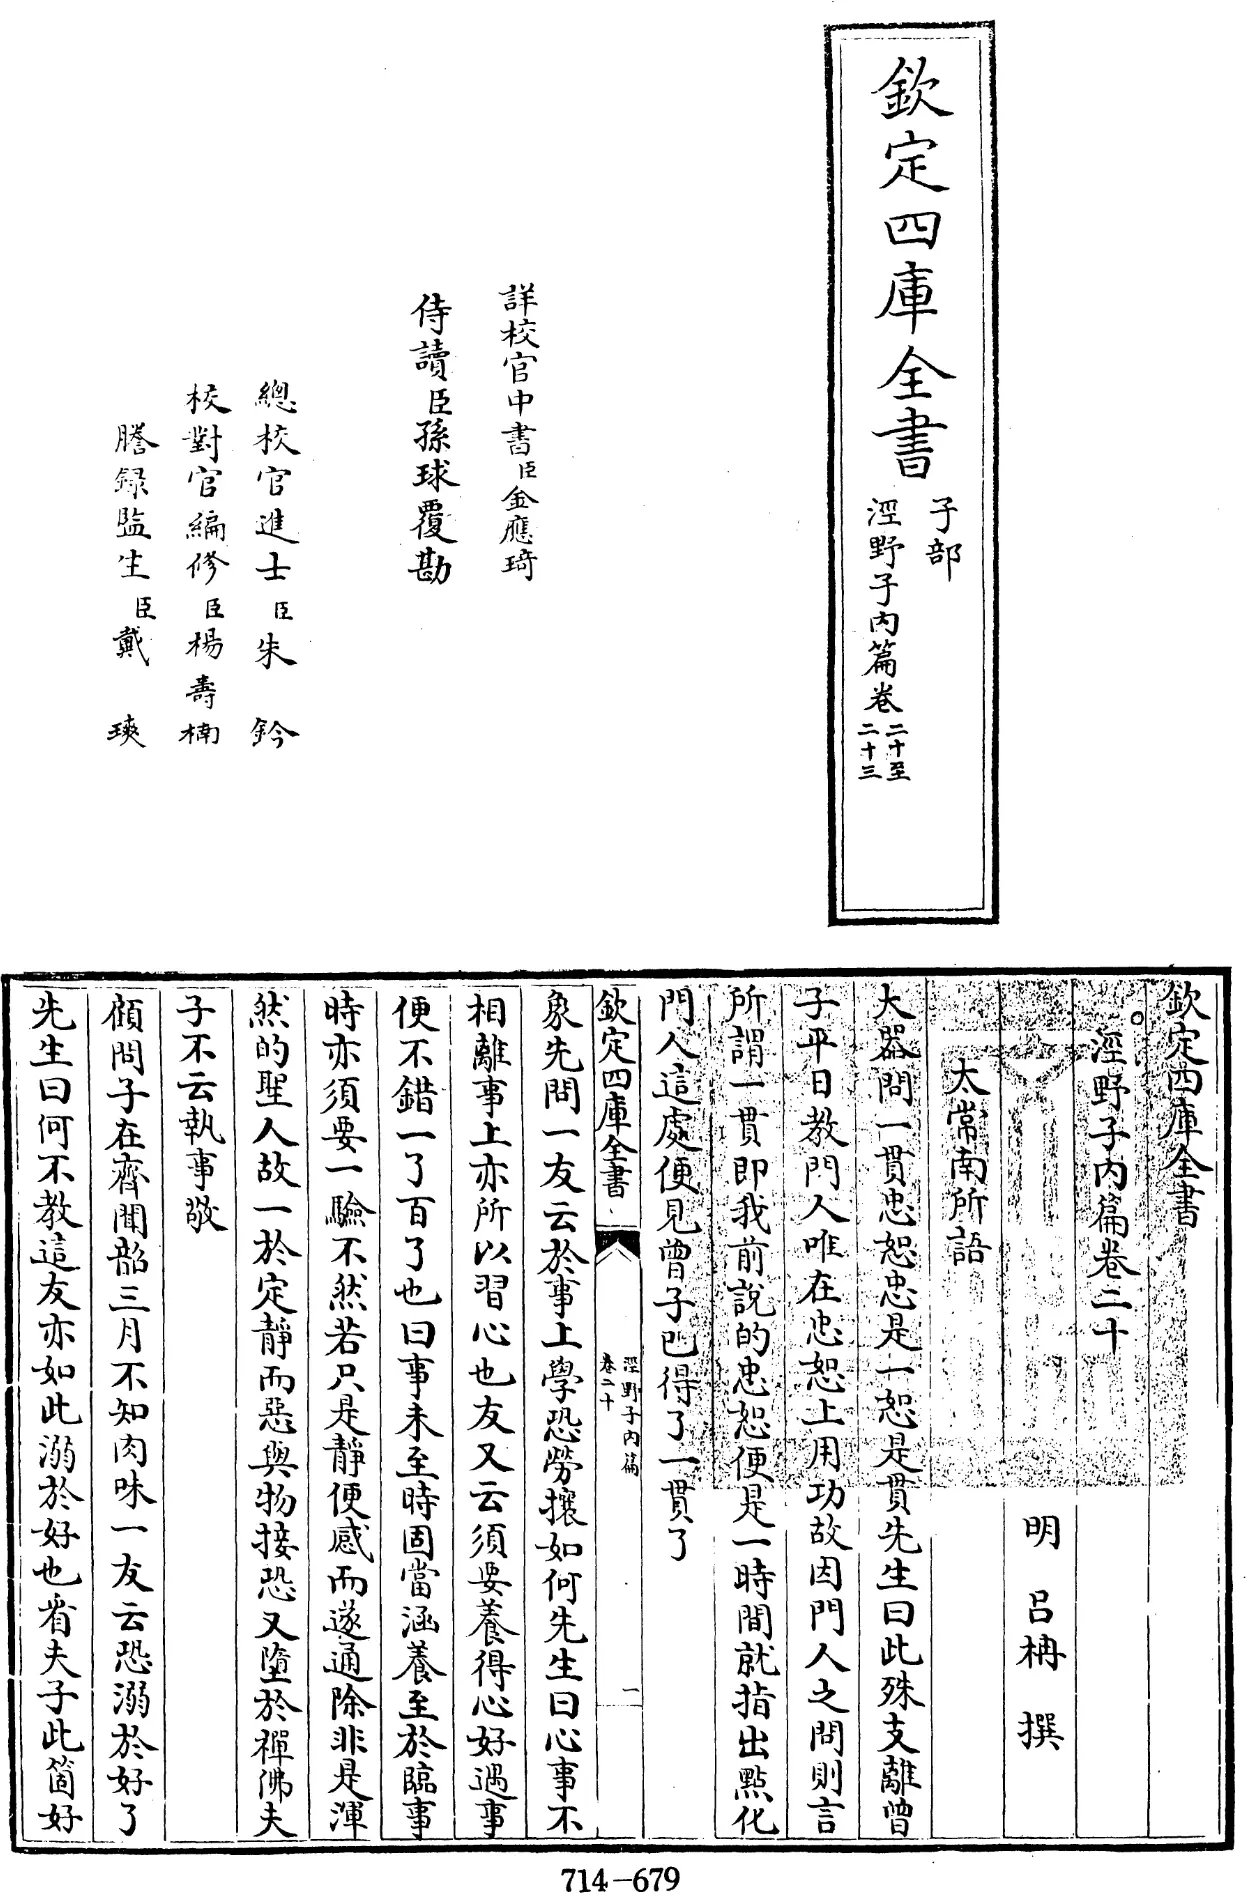 欽定四庫全書
子部
涇野子内篇卷二十至二十三
詳校官中書臣金應琦
侍讀臣孫球覆勘
總校官進士臣朱鈐
校對官編修臣楊壽楠
謄録監生臣戴瑛
欽定四庫全書
涇野子内篇卷二十
明 吕柟 撰
太常南所語
大器問一貫忠恕忠是一恕是貫先生曰此殊支離曾
子平日教門人唯在忠恕上用功故因門人之問則言
所謂一貫即我前說的忠恕便是一時間就指出點化
門人這處便見曾子已得了一貫了
欽定四庫全書
涇野子内篇
卷二十
一
象先問一友云於事上學恐勞攘如何先生曰心事不
相離事上亦所以習心也友又云須要養得心好遇事
便不錯一了百了也曰事未至時固當涵養至於臨事
時亦須要一驗不然若只是靜便感而遂通除非是渾
然的聖人故一於定靜而惡與物接恐又墮於禪佛夫
子不云執事敬
顧問子在齊聞韶三月不知肉味一友云恐溺於好了
先生曰何不教這友亦如此溺於好也看夫子此箇好
714-679